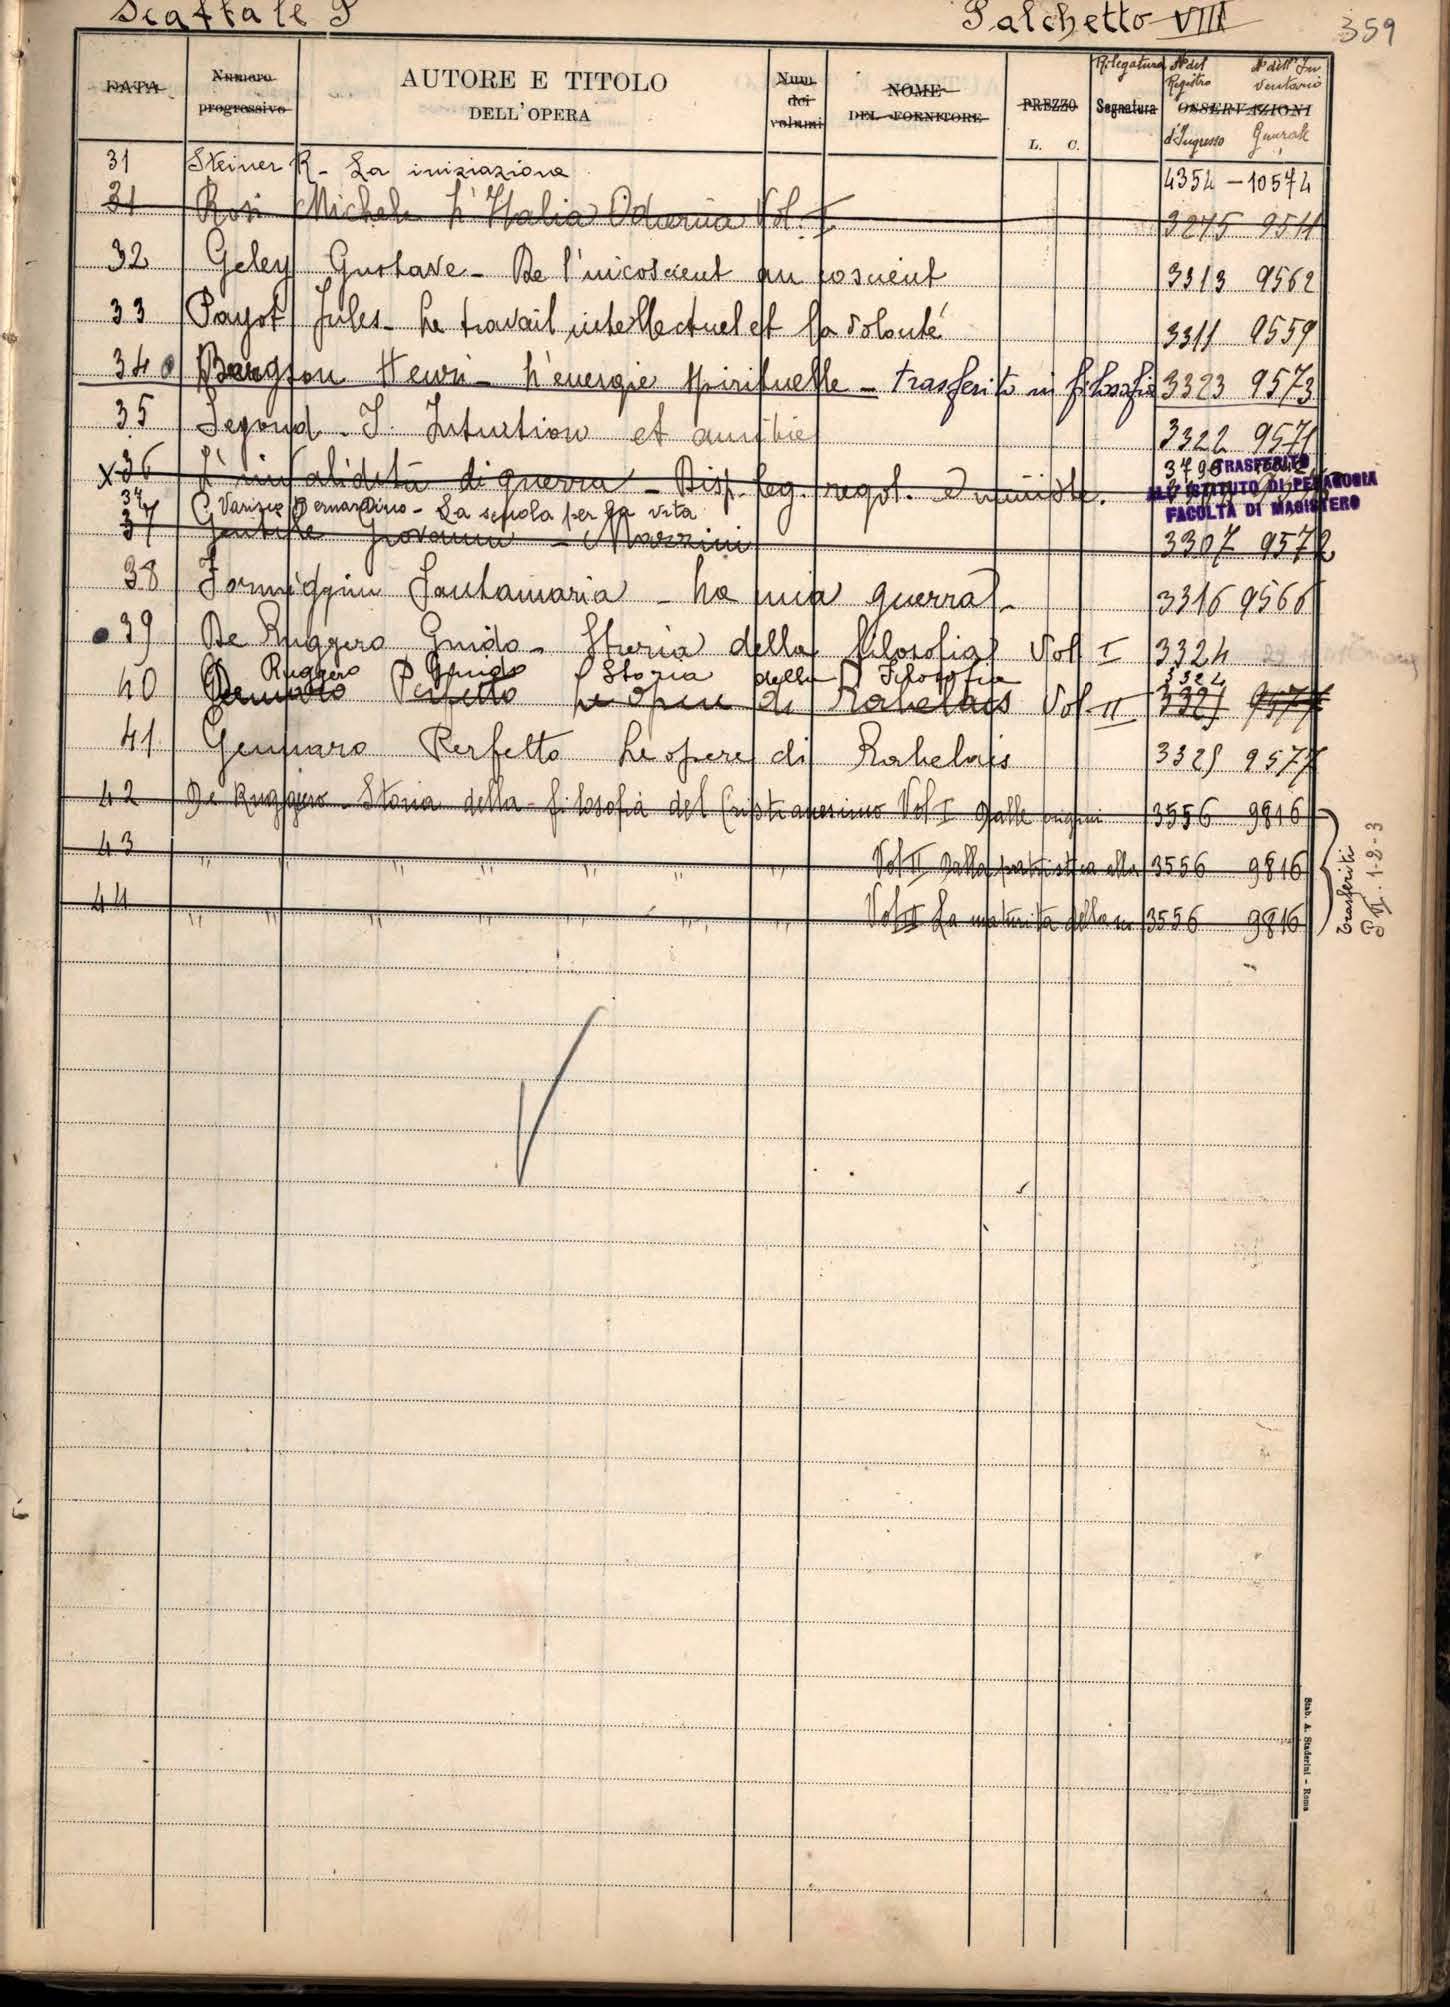 Scaffale P Palchetto VIII 359
DATA Numero progressivo AUTORE E TITOLO DELL'OPERA Num. dei volumi NOME DEL FORNITORE PREZZO L. C. Rilegatura Segnatura OSSERVAZIONI N° del Registro d'Ingresso N° dell'Inventario Generale
31 Steiner R - La iniziazione 4354 - 10574
31 Rosi Michele L'Italia Odierna Vol. I 3275 9511
32 Geley Gustave - De l'incoscient au coscient 3313 9562
33 Payot Jules - Le travail intellectuel et la volonté 3311 9559
34 Bergson Henri - L'énergie spirituelle - trasferito in filosofia 3323 9573
35 Segond - J. Intuition et amitié 3322 9571
x 36 L'invalidità di guerra - Disp. leg. regol. e
TRASFERITO
ALL'ISTITUTO DI PEDAGOGIA
FACOLTÀ DI MAGISTERO
37 Varisco Bernardino - La scuola per la vita
37 Gentile Giovanni - Mazzini 3307 9572
38 Formiggini Santamaria - La mia guerra - 3316 9566
39 De Ruggero Guido - Storia della filosofia Vol I 3324
Ruggero Guido Storia della Filosofia 3324
40 Gennaro Perfetto Le opere di Rabelais Vol II 3325 9577
41 Gennaro Perfetto Le opere di Rabelais 3325 9577
42 De Ruggiero - Storia della filosofia del Cristianesimo Vol I Dalle origini 3556 9816
43 " " " " " " Vol II Dalla patristica alla 3556 9816
44 " " " " " " Vol III La maturità della 3556 9816
Trasferiti
1-2-3
Stab. A. Staderini - Roma